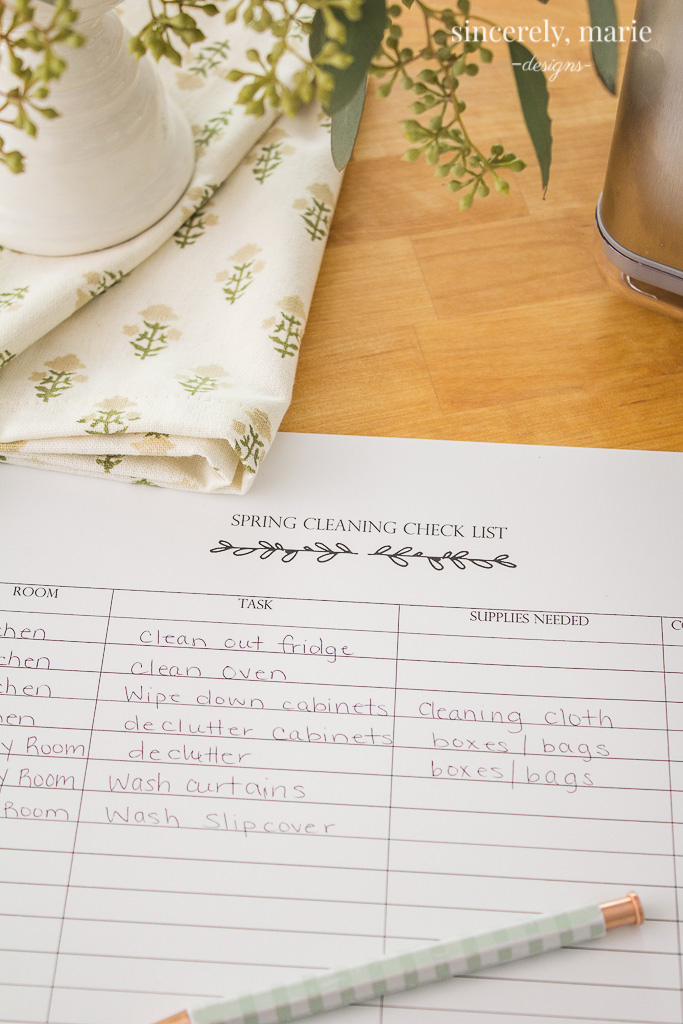 sincerely, marie
-designs-
SPRING CLEANING CHECK LIST
ROOM TASK SUPPLIES NEEDED
chen clean out fridge
chen clean oven
chen Wipe down cabinets cleaning cloth
hen declutter cabinets boxes / bags
y Room declutter boxes / bags
y Room Wash curtains
Room Wash Slipcover